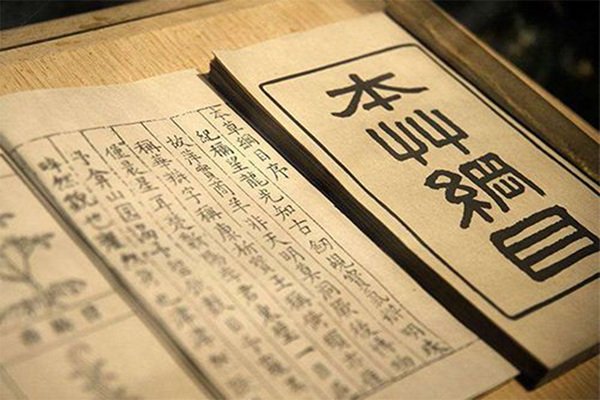 本艸綱目
本草綱目序
紀稱望龍光知古劒覘寶氣辨明珠
故萍實商羊非天明莫洞厥後博物
稱華辯字稱康析寶玉稱
僅晨星耳楚蘄陽李君東璧一日過
予弇山園謁予留飲數日予
睟然貌也癯然